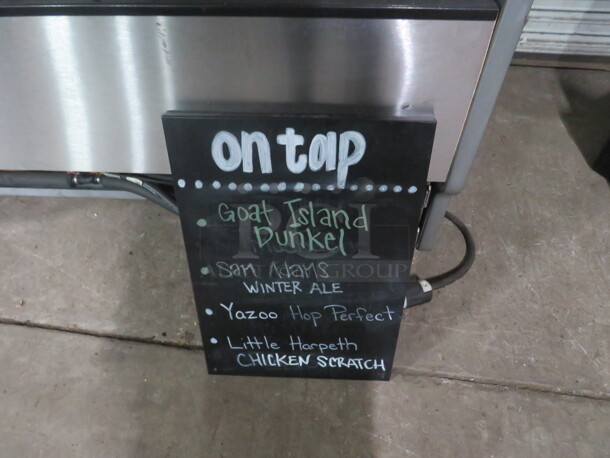 on tap
Goat Island
Dunkel
Sam Adams
WINTER ALE
Yazoo Hop Perfect
Little Harpeth
CHICKEN SCRATCH